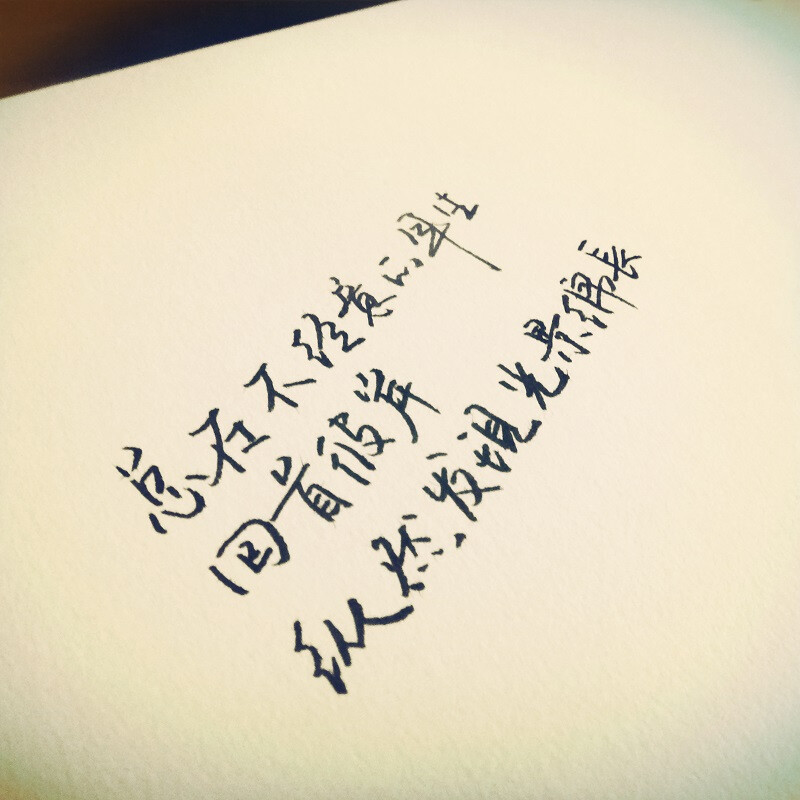 总在不经意的年生
回首彼岸
纵然发现光景绵长